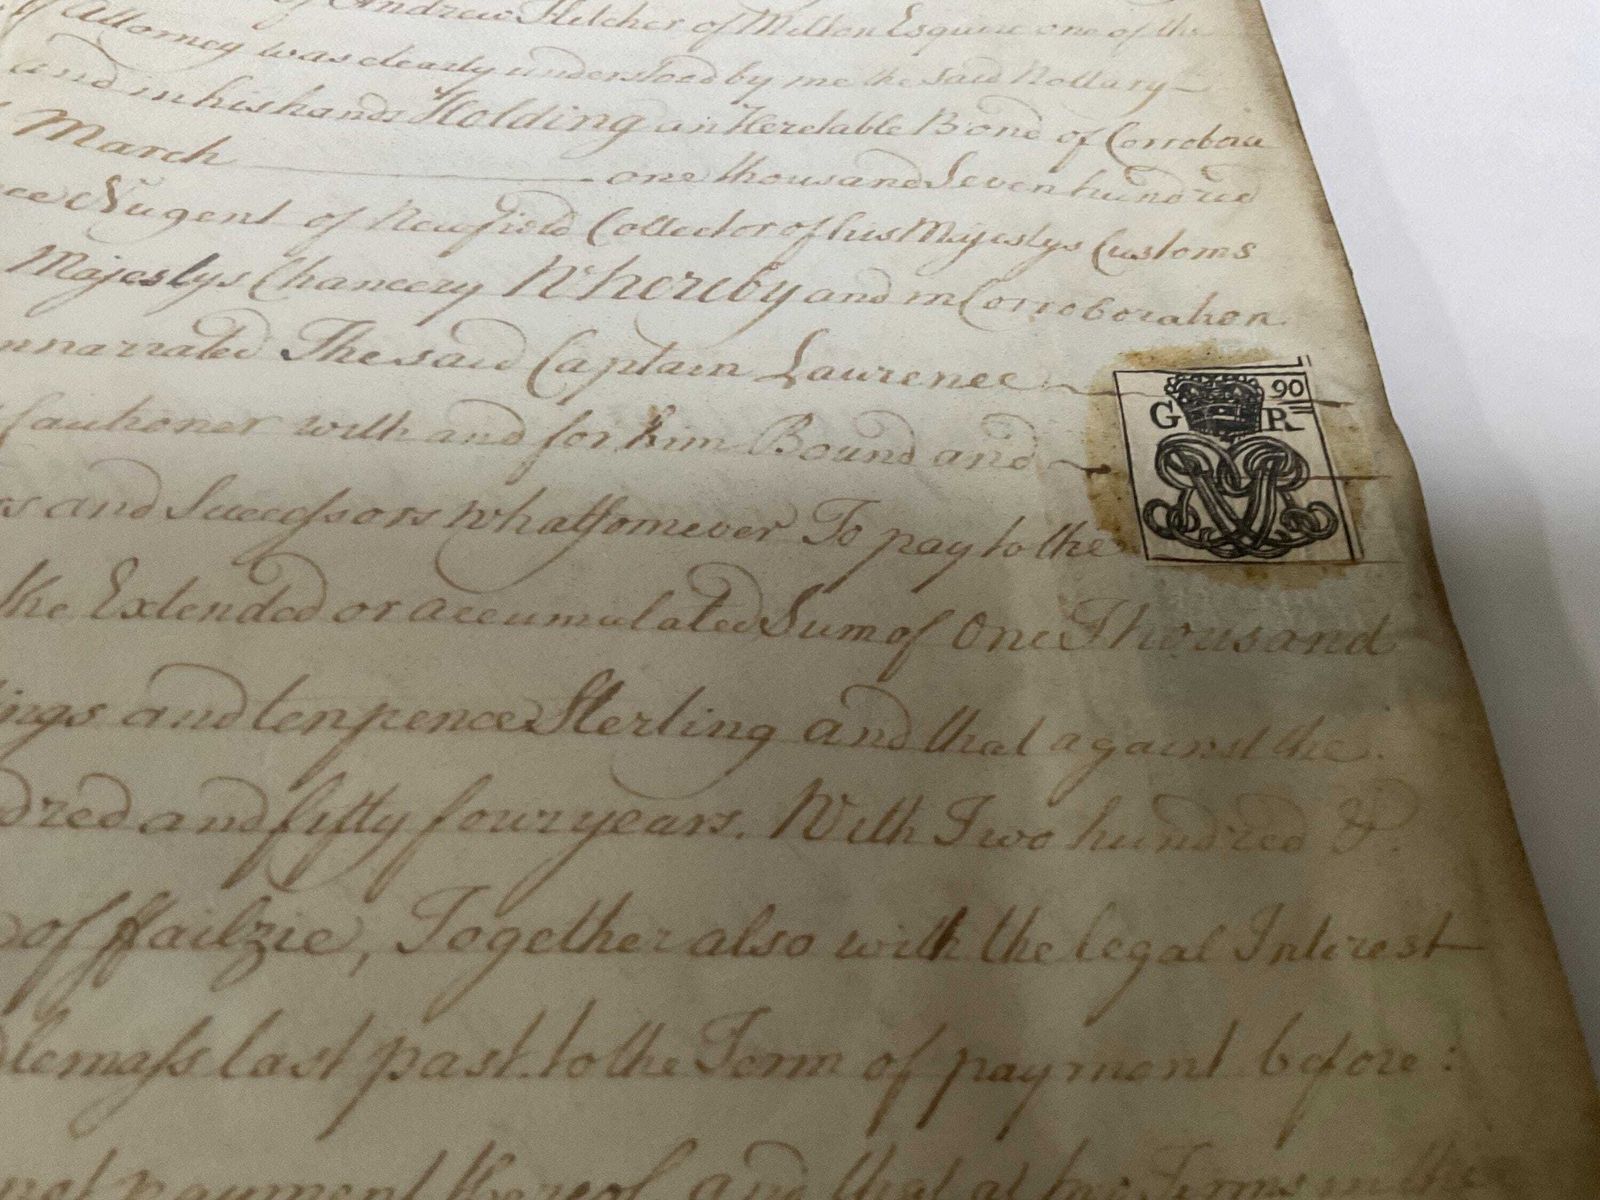 of Andrew Fletcher of Milton Esquire one of the
of Attorney was clearly understood by me the said Nottary
and in his hands Holding an Heretable Bond of Corrobora
March one thousand Seven hundred
Nugent of Newfield Collector of his Majestys Customs
Majestys Chancery Whereby and in Corroboration
narrated The said Captain Laurence
Cautioner with and for him Bound and
90
G R
and Successors whatsomever To pay to the
the Extended or accumulated Sum of One Thousand
ings and ten pence Sterling and that against the
dred and fifty four years. With Two hundred &
of ffailzie, Together also with the legal Interest
lemass last past to the Term of payment before:
not payment thereof and that at two Terms in the